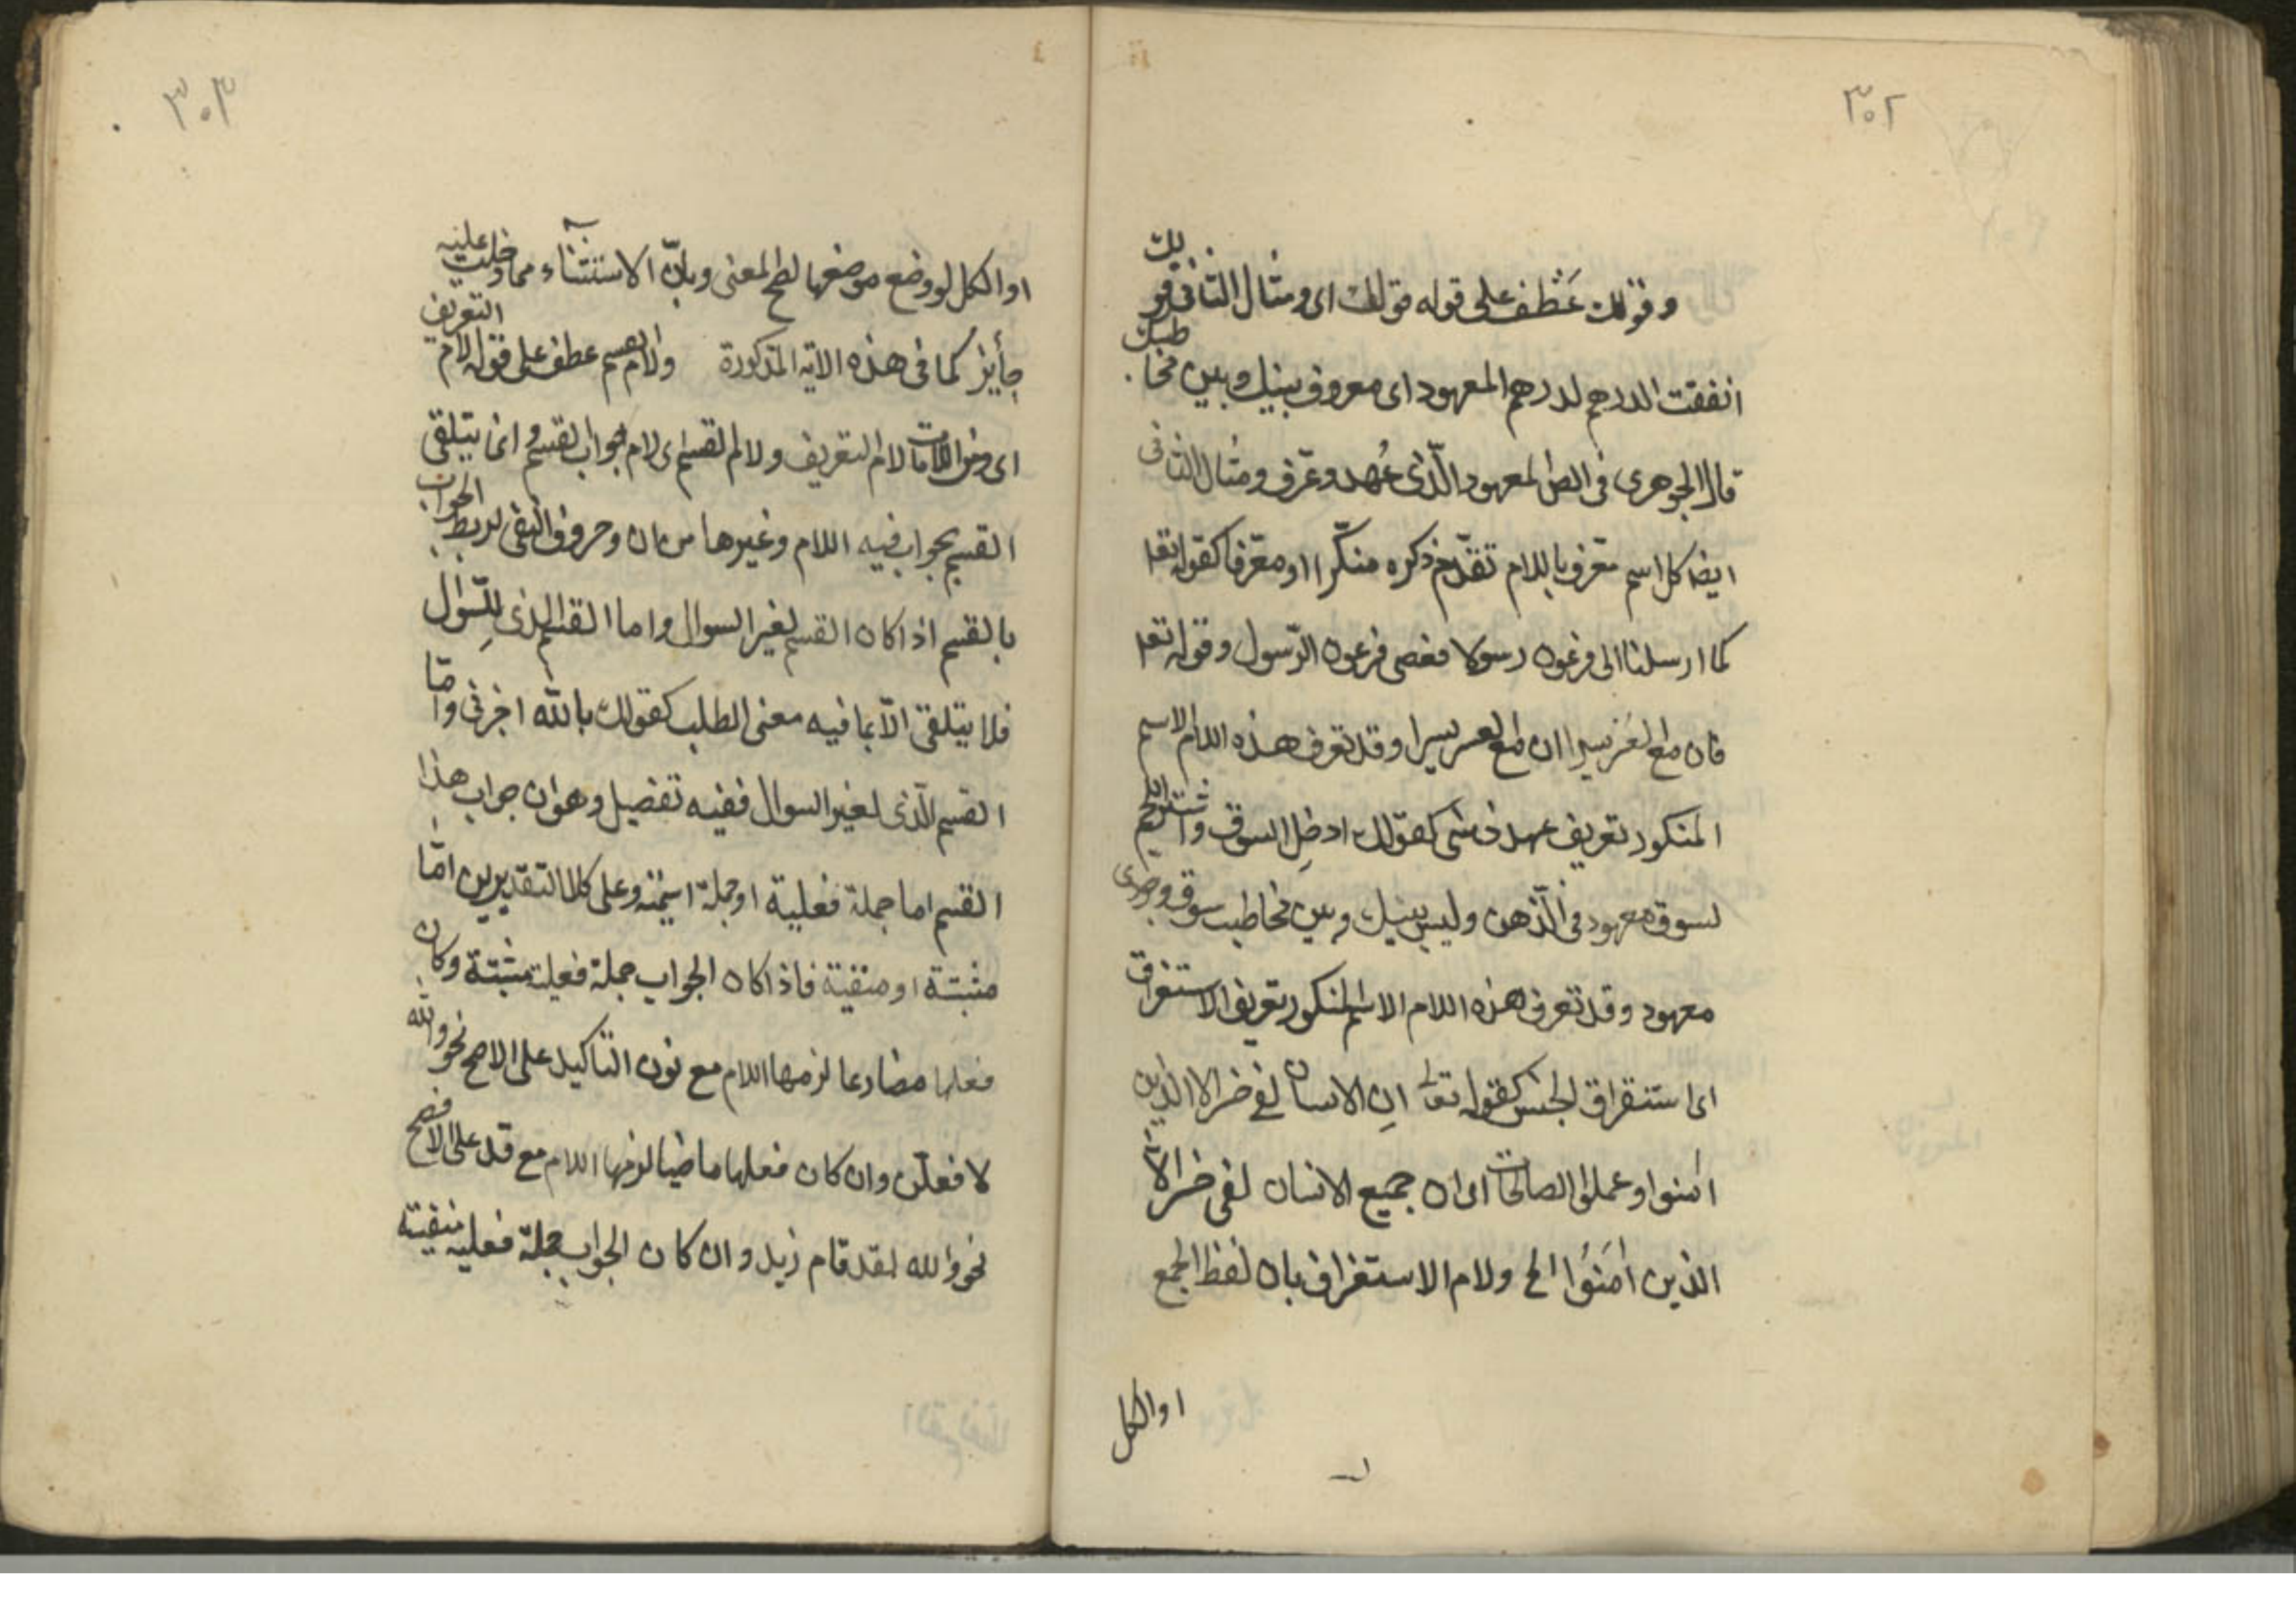 ٣٠٢
وقولك عَطف على قوله قولك اى ومثال الثانى قولك
انفقت الدرهم لدرهم المعهود اى معروف بينك وبين مخاطبك
قال الجوهرى فى الصل المعهود الّذى عُهد وعرّف ومثال الثانى
ايضا كل اسم معّرف باللام تقدّم ذكره منكّرا او معّرفا كقوله تعا
كما ارسلنا الى فرعون رسولا فعصى فرعون الرّسول وقوله تعا
فان مع العسر يسرا ان مع العسر يسرا وقد تعرف هذه اللام الاسم
المنكور تعريف عهد فى شى كقولك ادخلِ السوق واشتر اللحم
لسوق معهود فى الذّهن وليس بينك وبين مخاطبك سوق وجودى
معهود وقد تعرف هذه اللام الاسم المنكور تعريف الاستغراق
اى استغراق الجنس كقوله تعا انِ الانسان لفى خسر الا الذين
امنوا وعملوا الصالحات اى ان جميع الانسان لفى خسر الا
الذين اٰمَنُوا الخ ولام الاستغراق بان لفظ الجمع
او الكل
٣٠٣
او الكل لو وضع موضعها لصح المعنى وبانّ الاستثناء مما دخلت عليه
جأيز كما فى هذه الاية المذكورة ولام القسم عطف على قوله لام التعريف
اى ومن اللامات لام التعريف ولام القسم اى لام جواب القسم وانما يتلقى
القسم بجواب فيه اللام وغيرها من ان وحروف النفى لربط الجواب
بالقسم اذا كان القسم لغير السوال واما القسم الذى لِلسّوال
فلا يتلقى الاّ بما فيه معنى الطلب كقولك بالله اخرنى وامّا
القسم الّذى لغير السوال ففيه تفصيل وهو ان جواب هذا
القسم اما جملة فعلية او جملة اسميّة وعلى كلا التقديرين امّا
مثبتة او منفية فاذا كان الجواب جملة فعلية مثبتة وكان
فعلها مضارعا لزمها اللام مع نون التاكيد على الاصح نحو والله
لافعلنّ وان كان فعلها ماضيا لزمها اللام مع قد على الافصح
نحو والله لقد قام زيد وان كان الجواب جملة فعلية منفية